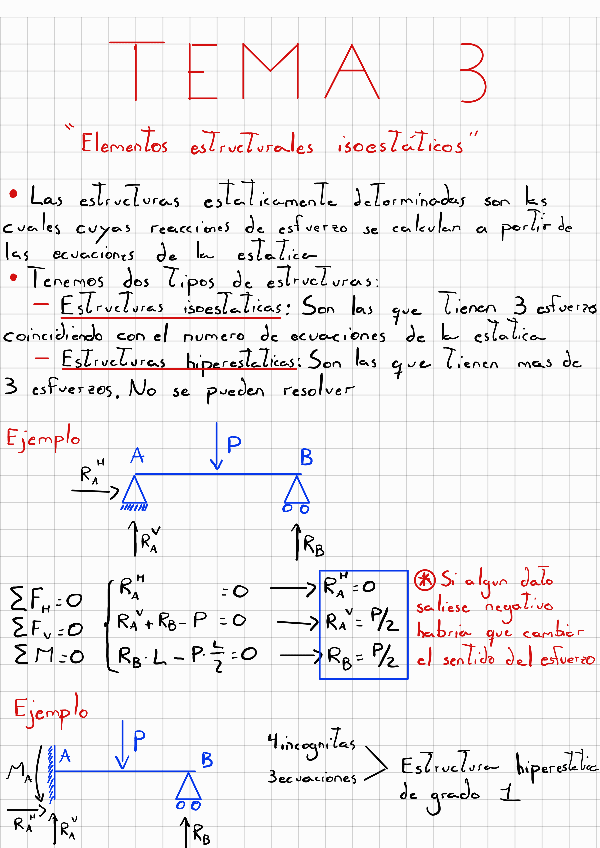 TEMA 3
"Elementos estructurales isoestáticos"
• Las estructuras estaticamente determinadas son las
cuales cuyas reacciones de esfuerzo se calculan a partir de
las ecuaciones de la estatica
• Tenemos dos tipos de estructuras:
— Estructuras isoestaticas: Son las que tienen 3 esfuerzos
coincidiendo con el numero de ecuaciones de la estatica
— Estructuras hiperestaticas: Son las que tienen mas de
3 esfuerzos. No se pueden resolver
Ejemplo
A
P
B
R_A^H
R_A^V
R_B
ΣF_H=0
ΣF_V=0
ΣM=0
R_A^H =0 → R_A^H=0
R_A^V+R_B-P =0 → R_A^V=P/2
R_B·L-P·L/2=0 → R_B=P/2
* Si algun dato
saliese negativo
habria que cambiar
el sentido del esfuerzo
Ejemplo
M_A
A
P
B
R_A^H
R_A^V
R_B
4 incognitas
3 ecuaciones
Estructura hiperestatica
de grado 1